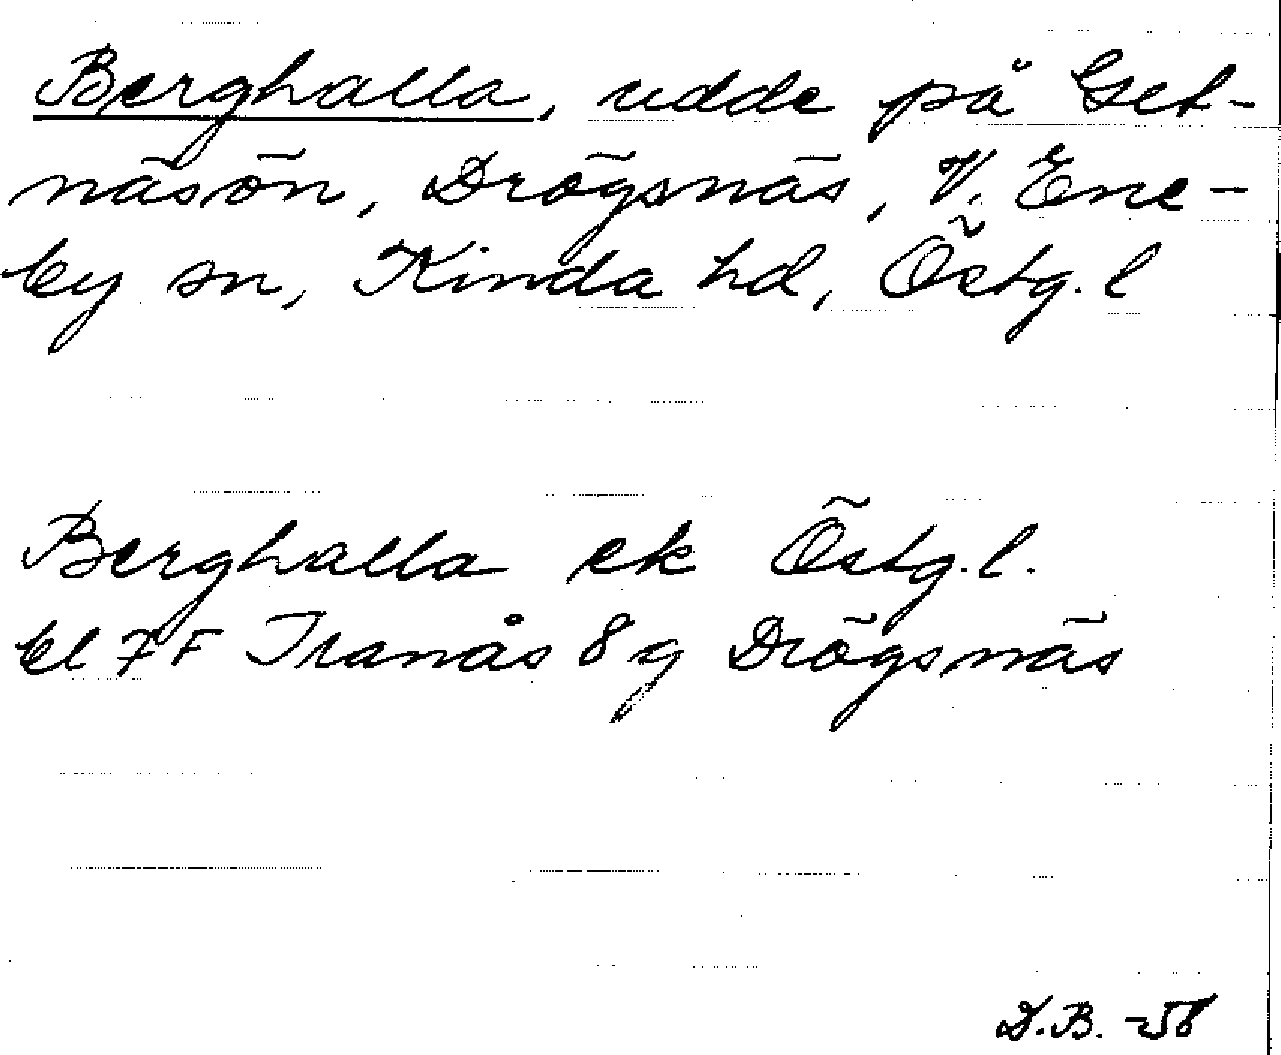 Berghalla, udde på Get-
näsön, Drögsnäs, V. Ene-
by sn, Kinda hd, Östg. l
Berghalla ek Östg.l.
bl 7F Tranås 8 g Drögsnäs
D.B. -58